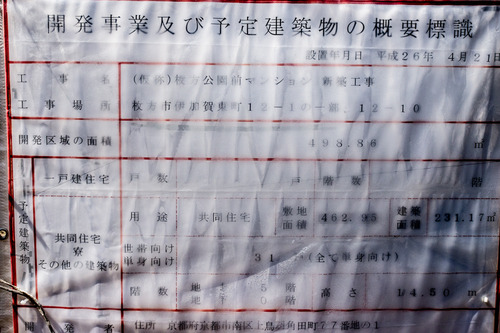 開発事業及び予定建築物の概要標識
設置年月日 平成26年 4月21日
工事名 (仮称)枚方公園前マンション 新築工事
工事場所 枚方市伊加賀東町12-1の一部、12-10
開発区域の面積 498.86 ㎡
予定建築物
一戸建住宅 戸数 戸 階数 階
共同住宅 寮 その他の建築物
用途 共同住宅 敷地面積 462.95 建築面積 231.17㎡
世帯向け 単身向け 31戸(全て単身向け)
階数 地上 5階 地下 0階 高さ 14.50 m
開発者 住所 京都府京都市南区上鳥羽角田町77番地の1